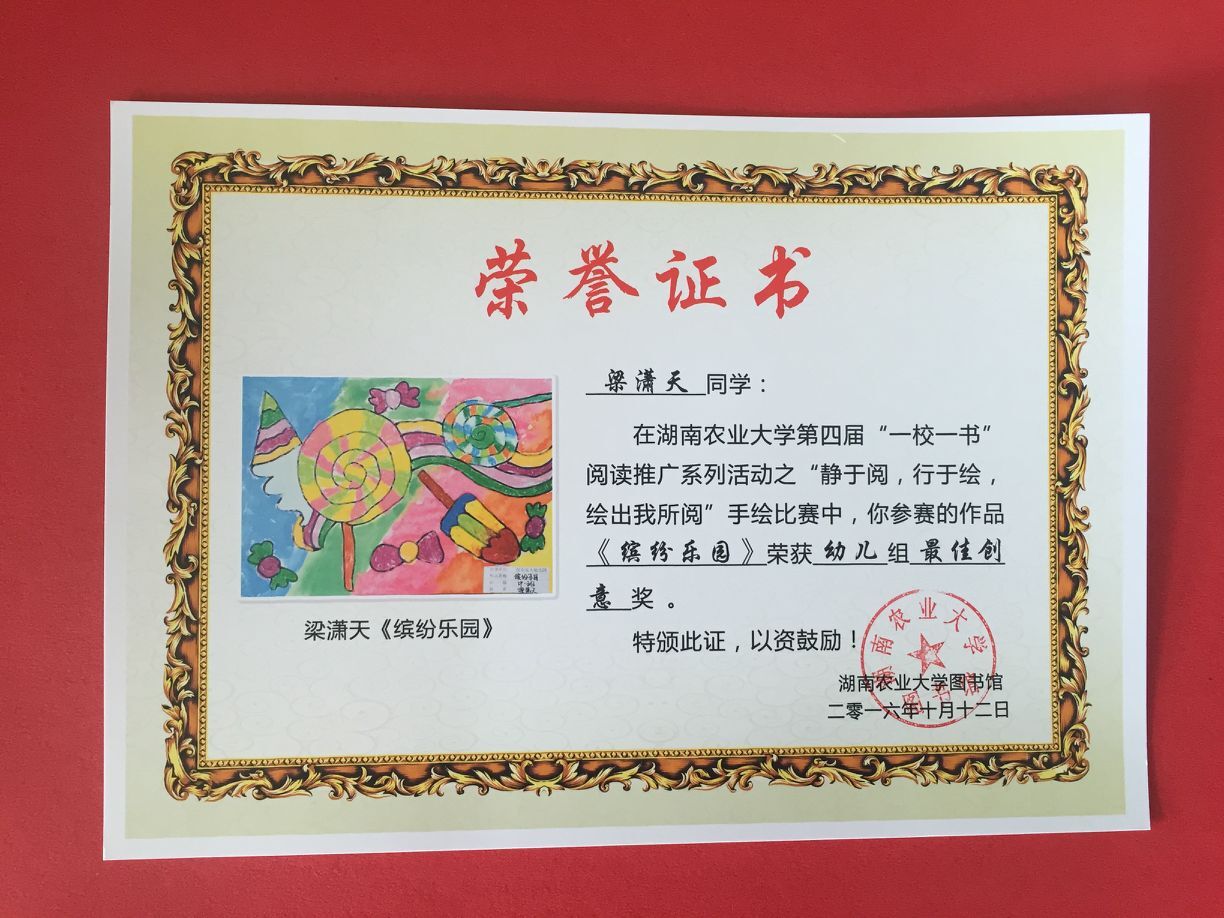 荣誉证书
梁潇天 同学：
在湖南农业大学第四届“一校一书”
阅读推广系列活动之“静于阅，行于绘，
绘出我所阅”手绘比赛中，你参赛的作品
《缤纷乐园》荣获 幼儿 组 最佳创
意 奖 。
特颁此证，以资鼓励！
湖南农业大学图书馆
二零一六年十月十二日
湖南农业大学
图书馆
缤纷乐园
梁潇天《缤纷乐园》